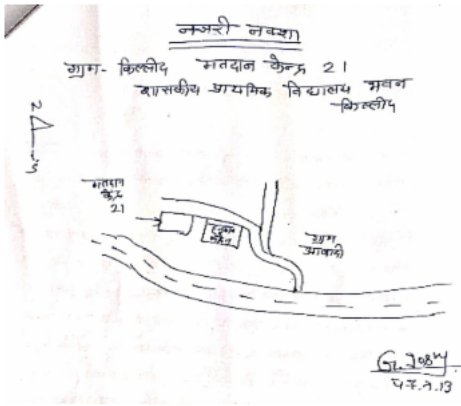 नजरी नक्शा
ग्राम - किल्लौद मतदान केन्द्र 21
शासकीय प्राथमिक विद्यालय भवन
किल्लौद
मतदान
केन्द्र
21
ग्राम
आबादी